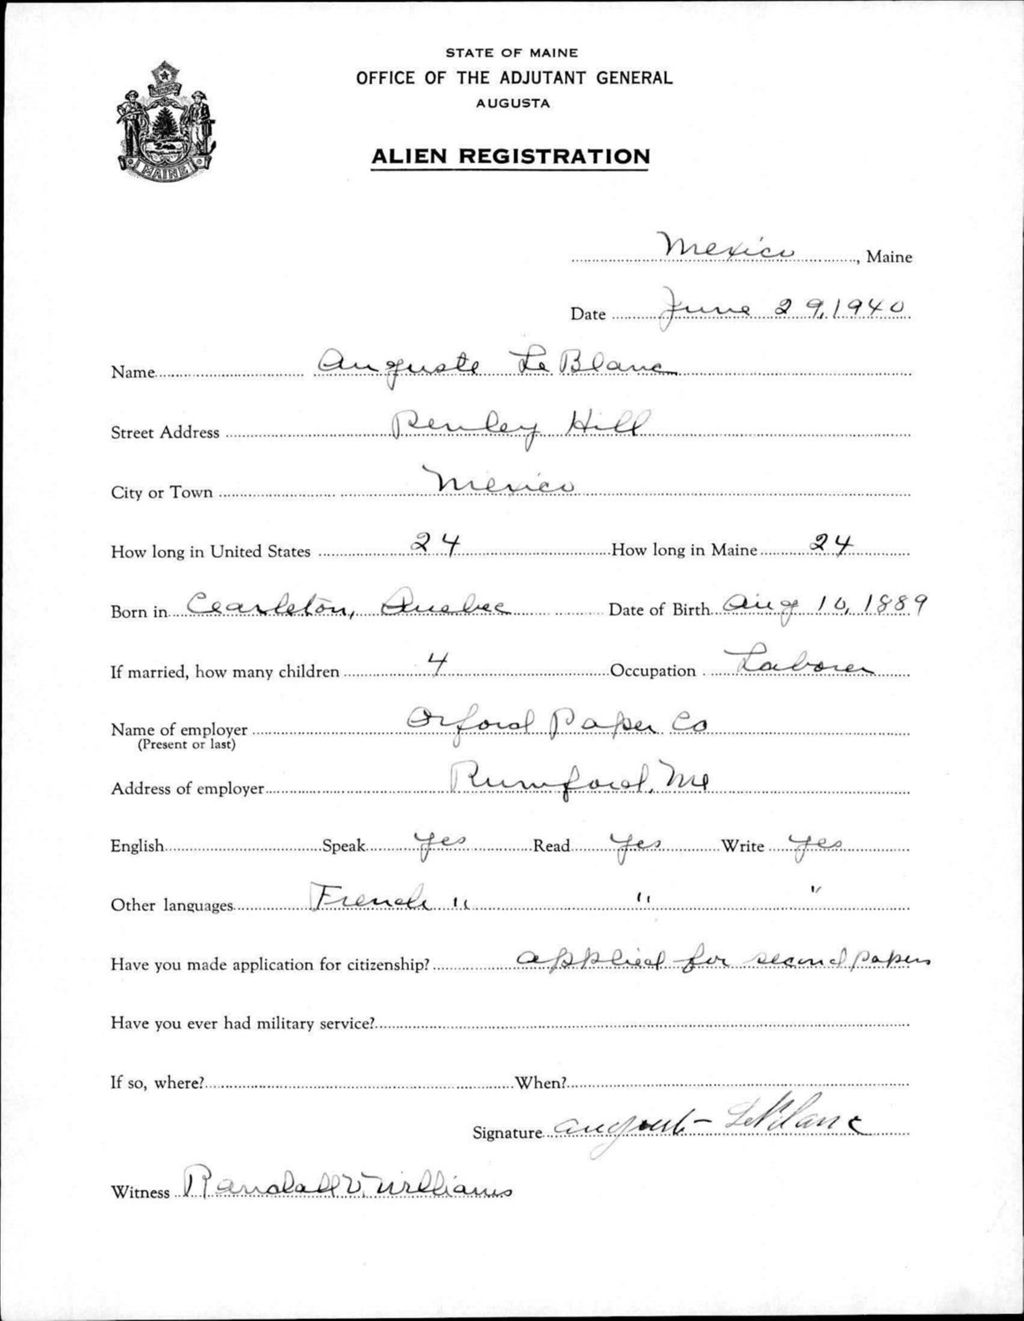 STATE OF MAINE
OFFICE OF THE ADJUTANT GENERAL
AUGUSTA
ALIEN REGISTRATION
MAINE
Mexico, Maine
Date June 29, 1940
Name Auguste Le Blanc
Street Address Penley Hill
City or Town Mexico
How long in United States 24 How long in Maine 24
Born in Cearleton, Quebec Date of Birth Aug 10, 1889
If married, how many children 4 Occupation Laborer
Name of employer Oxford Paper Co
(Present or last)
Address of employer Rumford, Me
English Speak yes Read yes Write yes
Other languages French " " "
Have you made application for citizenship? applied for second papers
Have you ever had military service?
If so, where? When?
Signature August LeBlanc
Witness Randall V. Williams